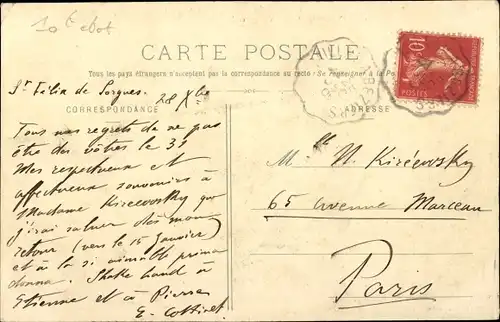 CARTE POSTALE
Tous les pays étrangers n'acceptent pas la correspondance au recto (Se renseigner à la Po
CORRESPONDANCE
ADRESSE
10c
POSTES
St Félix de Sorgues 28 Xbre
Tous nos regrets de ne pas
être des vôtres le 31
Mes respectueux et
affectueux souvenirs à
Madame Kireevosky que
j'irai saluer dès mon
retour (vers le 15 Janvier)
et à la si aimable prima
donna. Shake hand à
Etienne et à Pierre
E.
N. Kiréewsky
65 avenue Marceau
Paris